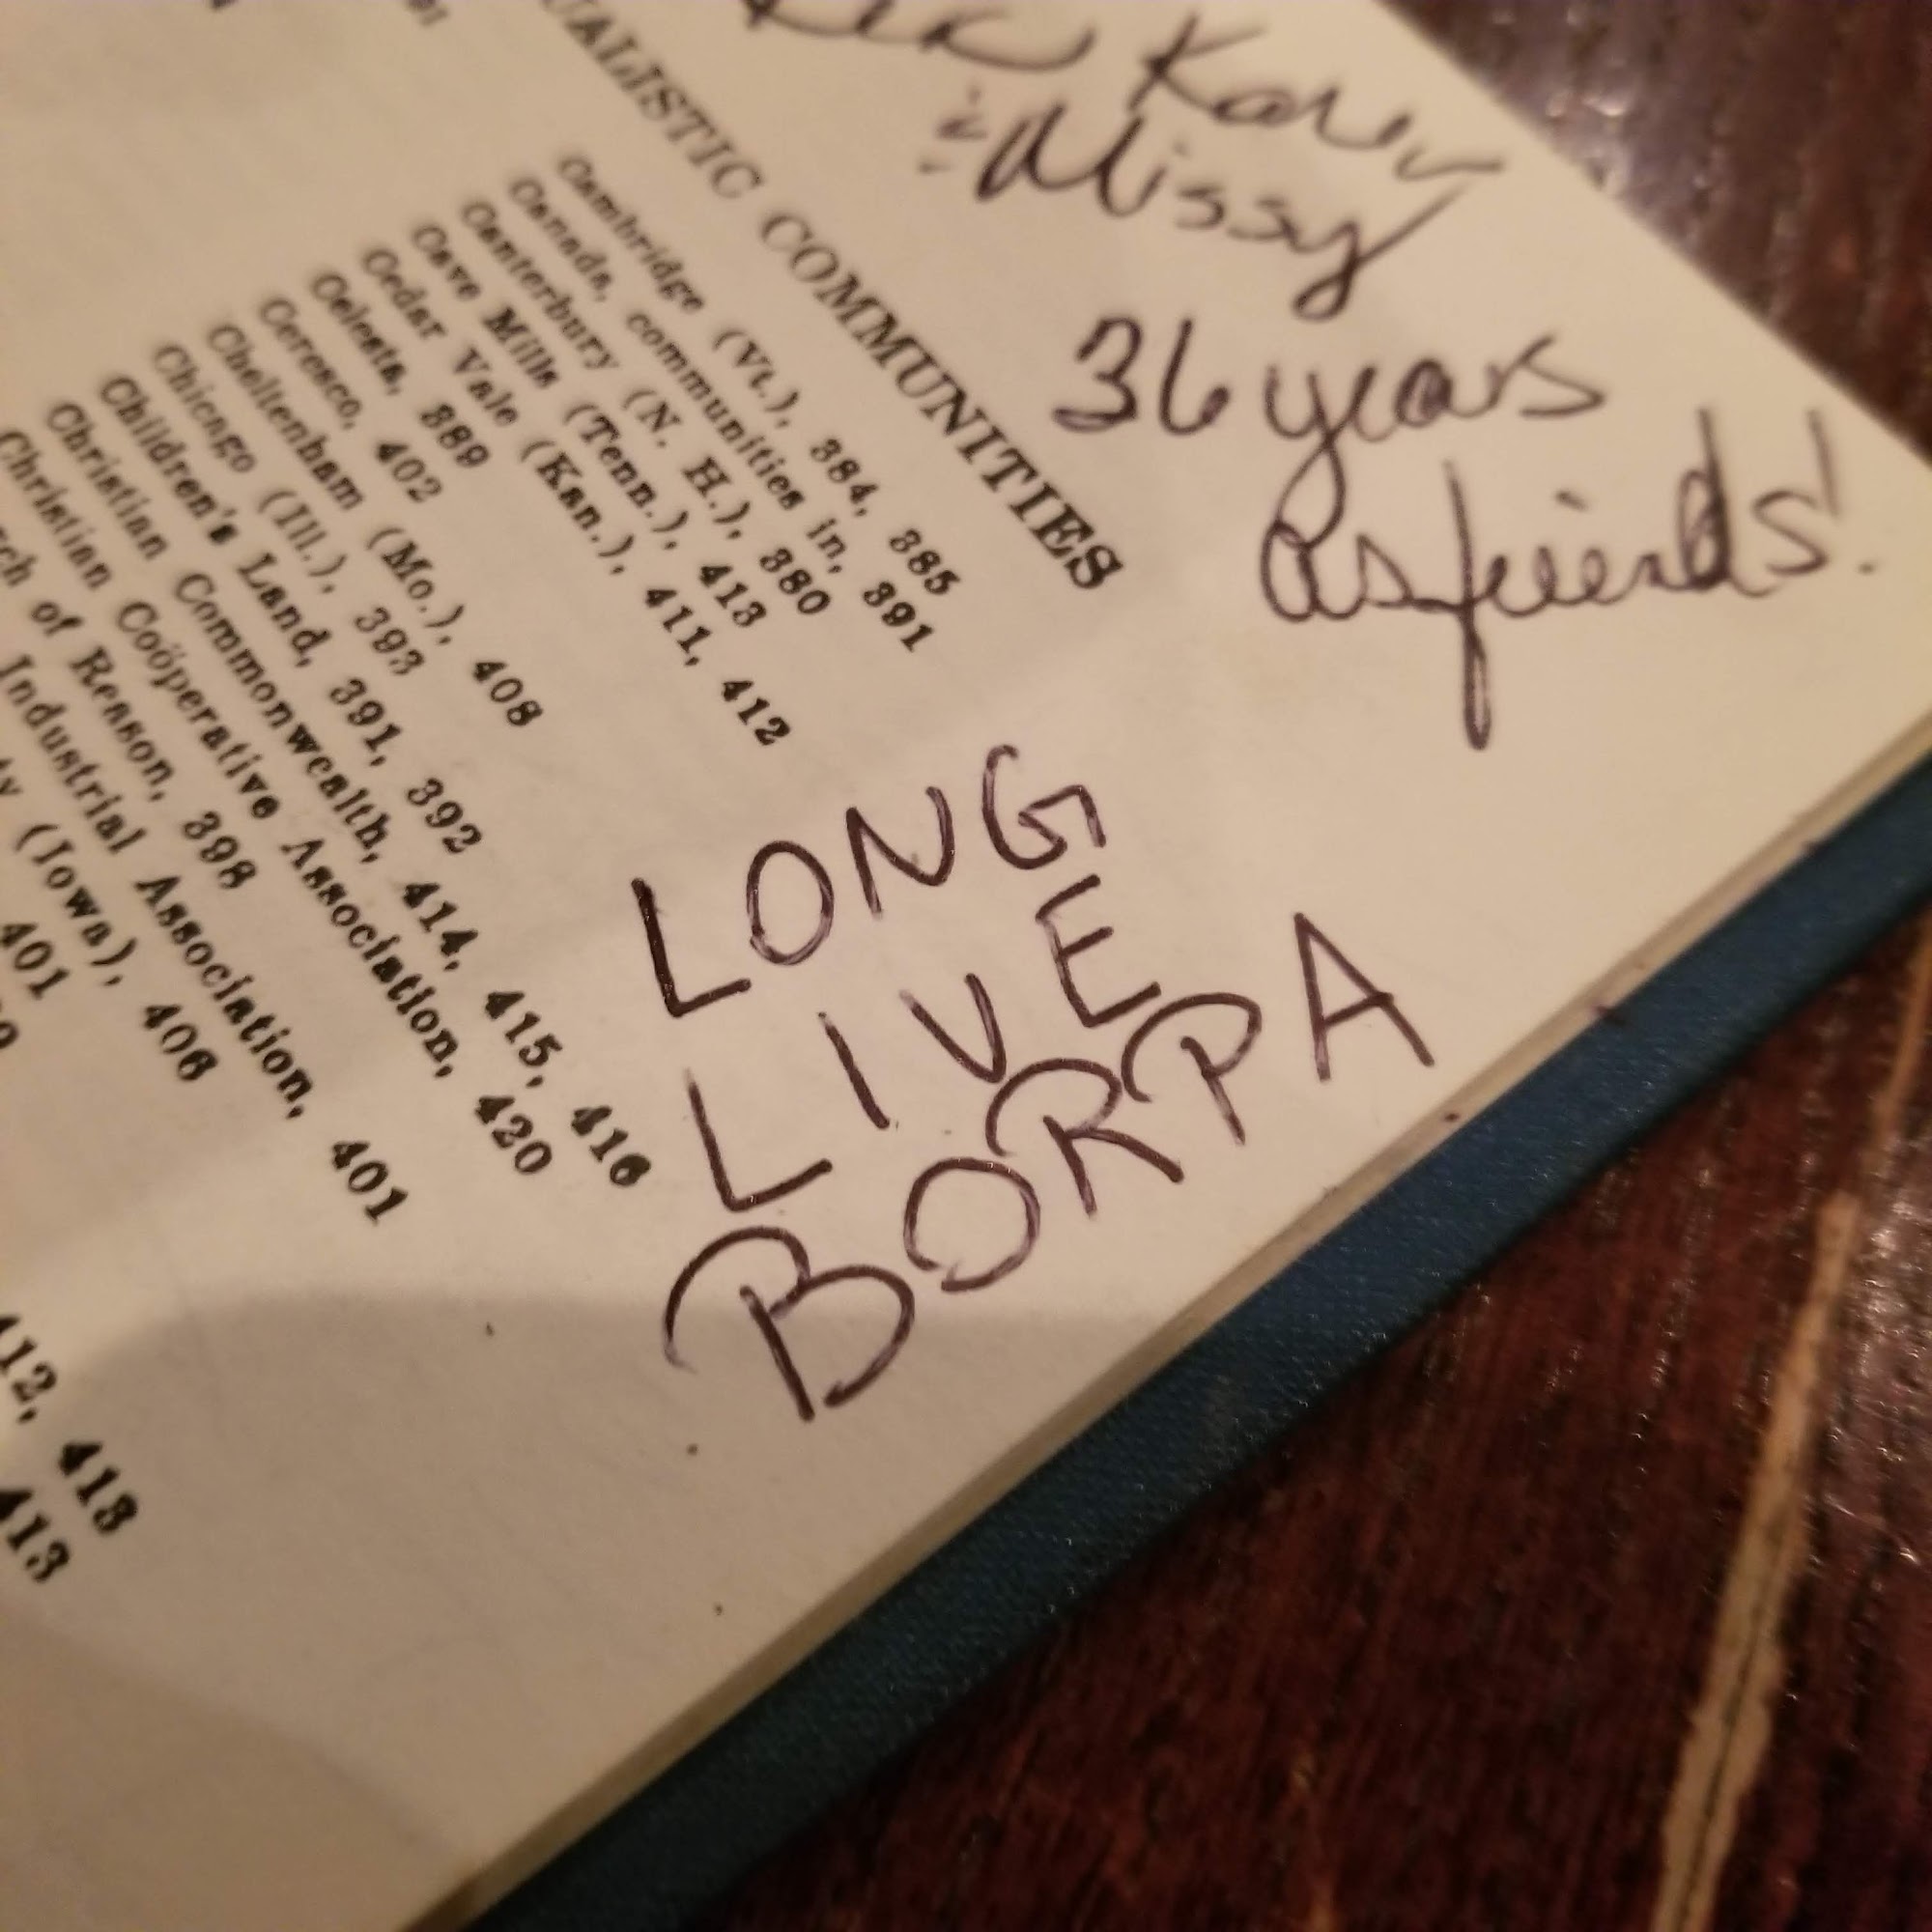 COMMUNITIES
Cambridge (Vt.), 384, 385
Canada, communities in, 391
Canterbury (N. H.), 380
Cave Mills (Tenn.), 413
Cedar Vale (Kan.), 411, 412
Celesta, 389
Ceresco, 402
Cheltenham (Mo.), 408
Chicago (Ill.), 393
Children's Land, 391, 392
Christian Commonwealth, 414, 415, 416
Christian Coöperative Association, 420
of Reason, 398
Industrial Association,
401
(Iowa), 406
401
413
413
Karen
& Missy
36 years
as friends!
LONG
LIVE
BORPA